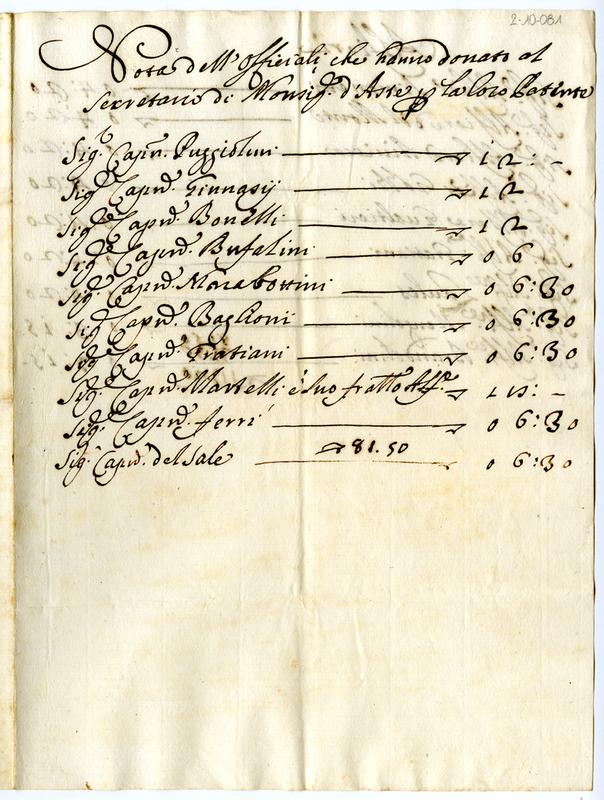 2-10-081
Nota dell' Offitiali che hanno donato al
Secretario di Monsigr. d'Aste p la loro Patente
Sigr. Capn. Puggiolini 12: -
Sigr. Capn. 12
Sigr. Capn. Bonelli 12
Sigr. Capn. Bufalini 06
Sigr. Capn. Marabottini 06:30
Sigr. Capn. Baglioni 06:30
Sigr. Capn. Gratiani 06:30
Sigr. Capn. Martelli é suo fratto : -
Sigr. Capn. ferri 06:30
81.50
Sigr. Capn. del Sale 06:30